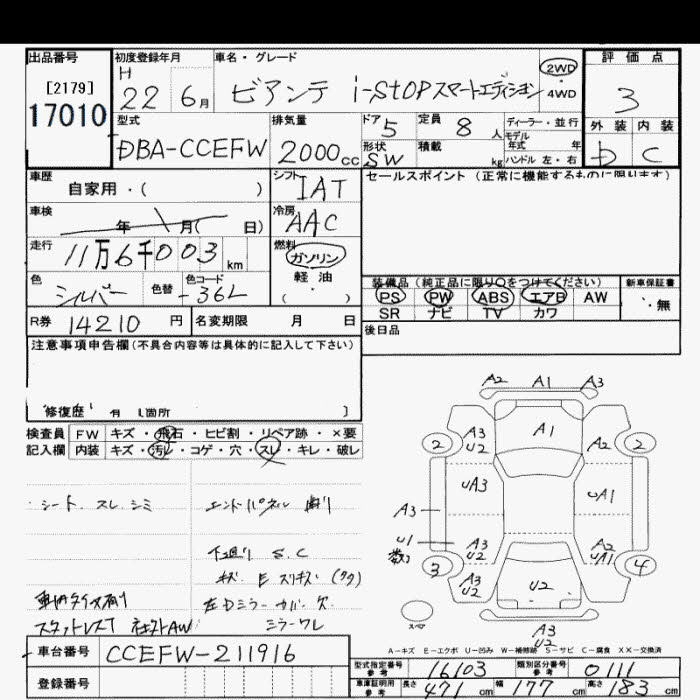 出品番号
[2179]
17010
初度登録年月
H 22 6月
車名・グレード
ビアンテ i-STOPスマートエディション
2WD
・
4WD
評価点
3
外装 内装
b C
型式
DBA-CCEFW
排気量
2000cc
ドア 5
形状 SW
定員 8人
積載 kg
ディーラー・並行
モデル
年式 年
ハンドル 左・右
車歴
自家用・( )
シフト IAT
セールスポイント (正常に機能するものに限ります)
車検
年 月( 日)
冷房 AAC
走行
11万6千003km
燃料
ガソリン
軽・油
( )
色 シルバー
色替
色コード
36L
装備品 (純正品に限り○をつけてください)
新車保証書
・無
PS PW ABS エアB AW
SR ナビ TV カワ
R券 14210円
名変期限 月 日
後日品
注意事項申告欄(不具合内容等は具体的に記入して下さい)
修復歴 有 し箇所 ]
検査員 FW キズ・飛石・ヒビ割・リペア跡・×要
記入欄 内装 キズ・汚レ・コゲ・穴・スレ・キレ・破レ
シート スレ シミ
下廻り S.C
スタットレスT
左Dミラーカバー欠
ミラーワレ
A2 A1 A3
2 A3 U2 A1 A2 2
UA3 UA1
A3
U1 A3 U2 A2 UA1
3 A3 U2 U2 4
A3
U2
スペア
A-キズ E-エクボ U-凹み W-補修跡 S-サビ C-腐食 XX-交換済
車台番号 CCEFW-211916
登録番号
型式指定番号 参考 16103
類別区分番号 参考 0111
車庫証明用 参考 長さ 471cm 幅 177cm 高さ 183cm